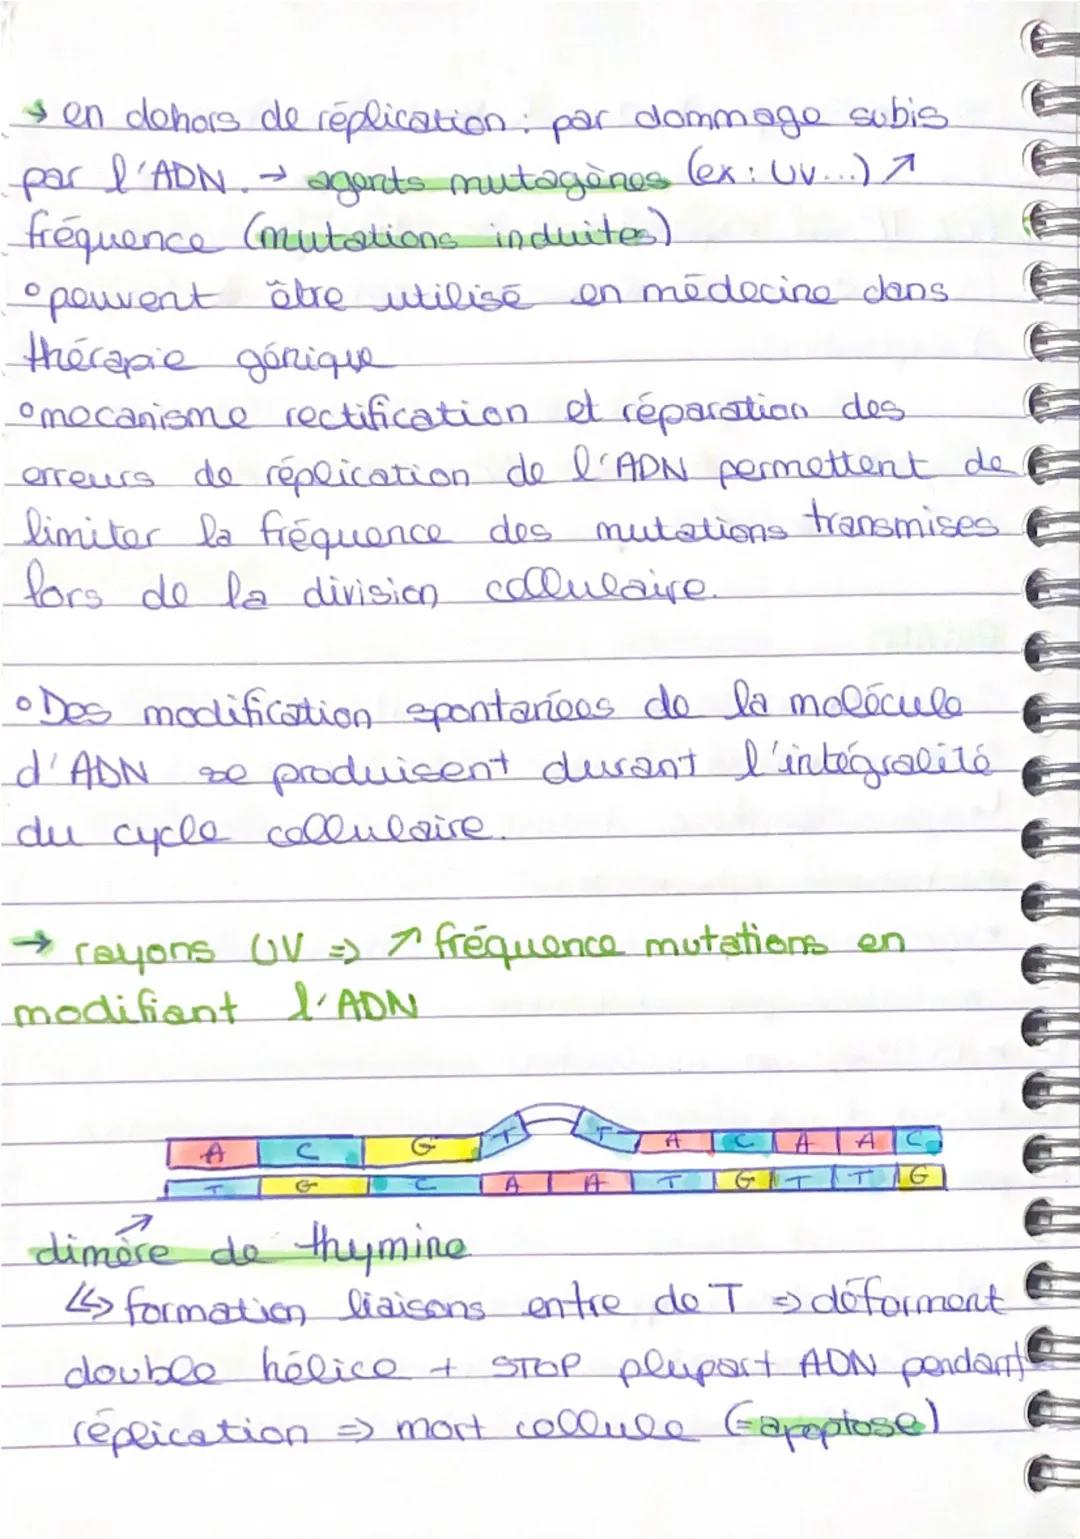 → en dehors de réplication : par dommage subis
par l'ADN. → agents mutagènes (ex : UV...) ↗
fréquence (mutations induites)
° peuvent être utilisé en médecine dans
thérapie génique
° mecanisme rectification et réparation des
erreurs de réplication de l'ADN permettent de
limiter la fréquence des mutations transmises
lors de la division cellulaire.
° Des modification spontanées de la molécule
d'ADN se produisent durant l'intégralité
du cycle cellulaire.
→ rayons UV => ↗ fréquence mutations en
modifiant l'ADN
A C G T T A C A A C
T G C A A T G T T G
dimère de thymine
↳> formation liaisons entre de T => déforment
double hélice + STOP plupart ADN pendant
réplication => mort cellule (= apoptose)